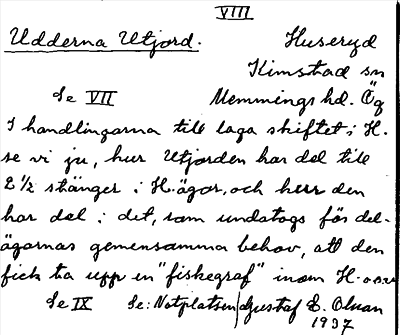 VIII
Udderna Utjord. Huseryd
Kimstad sn
Se VII Memmings hd. Ög
I handlingarna till laga skiftet i H.
se vi ju, hur Utjorden har del till
2 ½ stänger i H.-ägor, och hur den
har del i det, som undatogs för del-
ägarnas gemensamma behov, att den
fick ta upp en "fiskegraf" inom H. o.s.v
Se IX Se: Notplatsen Gustaf E. Olsson
1937